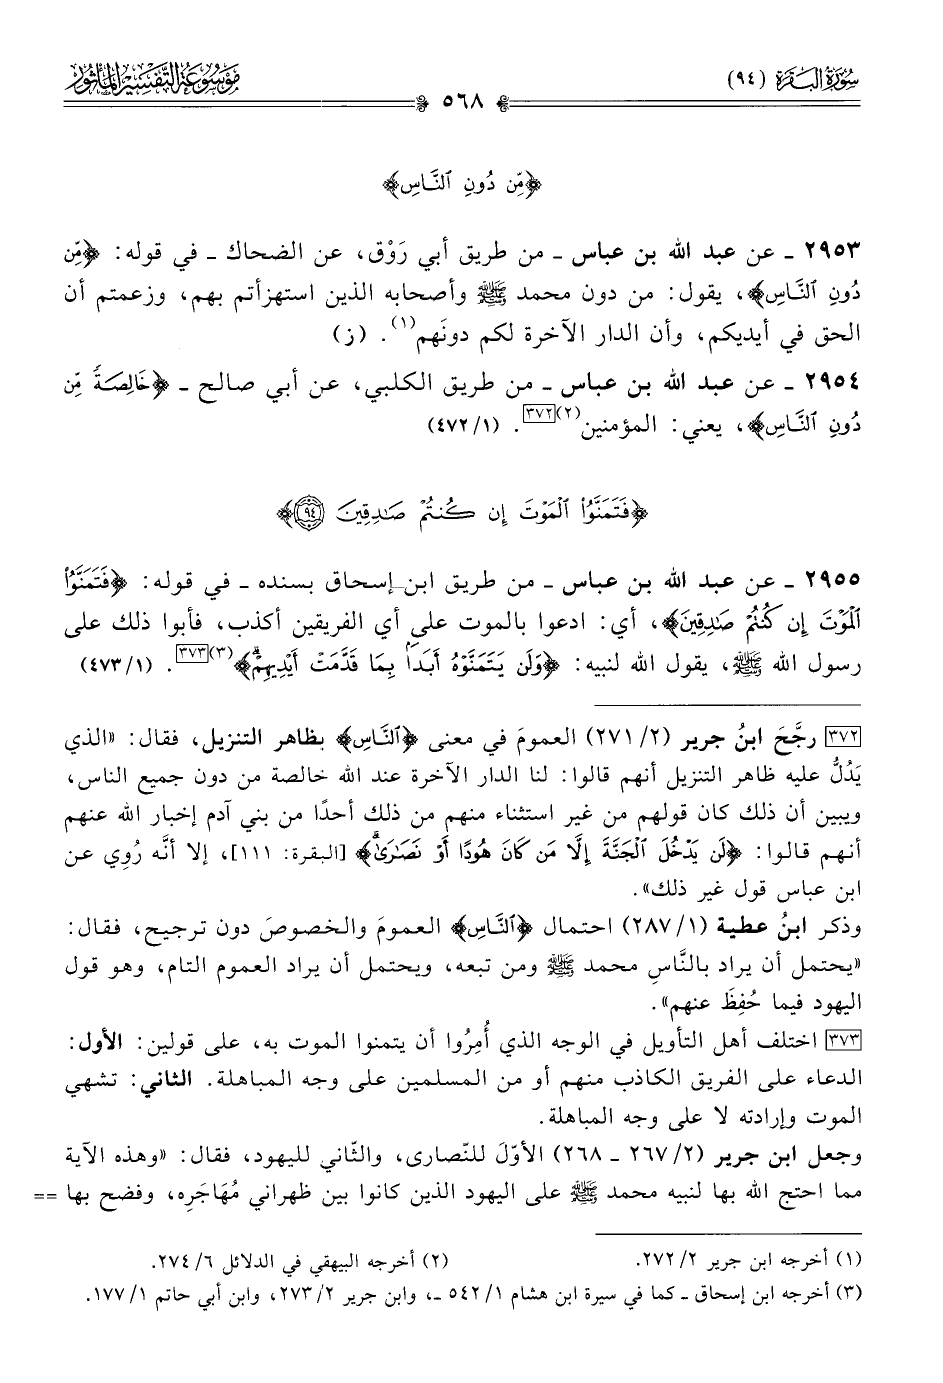 سُورَةُ البَقَرَة (٩٤)
مَوْسُوعَةُ التَّفْسِيرِ المَأْثُور
٥٦٨
﴿مِّن دُونِ ٱلنَّاسِ﴾
٢٩٥٣ ـ عن عبد الله بن عباس ـ من طريق أبي رَوْق، عن الضحاك ـ في قوله: ﴿مِّن
دُونِ ٱلنَّاسِ﴾، يقول: من دون محمد ﷺ وأصحابه الذين استهزأتم بهم، وزعمتم أن
الحق في أيديكم، وأن الدار الآخرة لكم دونَهم(١). (ز)
٢٩٥٤ ـ عن عبد الله بن عباس ـ من طريق الكلبي، عن أبي صالح ـ ﴿خَالِصَةً مِّن
دُونِ ٱلنَّاسِ﴾، يعني: المؤمنين(٢)[٣٧٢]. (٤٧٢/١)
﴿فَتَمَنَّوُا۟ ٱلْمَوْتَ إِن كُنتُمْ صَـٰدِقِينَ ٩٤﴾
٢٩٥٥ ـ عن عبد الله بن عباس ـ من طريق ابن إسحاق بسنده ـ في قوله: ﴿فَتَمَنَّوُا۟
ٱلْمَوْتَ إِن كُنتُمْ صَـٰدِقِينَ﴾، أي: ادعوا بالموت على أي الفريقين أكذب، فأبوا ذلك على
رسول الله ﷺ، يقول الله لنبيه: ﴿وَلَن يَتَمَنَّوْهُ أَبَدًۢا بِمَا قَدَّمَتْ أَيْدِيهِمْ﴾(٣)[٣٧٣]. (٤٧٣/١)
[٣٧٢] رجَّحَ ابنُ جرير (٢٧١/٢) العمومَ في معنى ﴿ٱلنَّاسِ﴾ بظاهر التنزيل، فقال: «الذي
يَدُلُّ عليه ظاهر التنزيل أنهم قالوا: لنا الدار الآخرة عند الله خالصة من دون جميع الناس،
ويبين أن ذلك كان قولهم من غير استثناء منهم من ذلك أحدًا من بني آدم إخبار الله عنهم
أنهم قالوا: ﴿لَن يَدْخُلَ ٱلْجَنَّةَ إِلَّا مَن كَانَ هُودًا أَوْ نَصَـٰرَىٰ﴾ [البقرة: ١١١]، إلا أنَّه رُوِي عن
ابن عباس قول غير ذلك».
وذكر ابنُ عطية (٢٨٧/١) احتمال ﴿ٱلنَّاسِ﴾ العمومَ والخصوصَ دون ترجيح، فقال:
«يحتمل أن يراد بالنَّاسِ محمد ﷺ ومن تبعه، ويحتمل أن يراد العموم التام، وهو قول
اليهود فيما حُفِظَ عنهم».
[٣٧٣] اختلف أهل التأويل في الوجه الذي أُمِرُوا أن يتمنوا الموت به، على قولين: الأول:
الدعاء على الفريق الكاذب منهم أو من المسلمين على وجه المباهلة. الثاني: تشهي
الموت وإرادته لا على وجه المباهلة.
وجعل ابن جرير (٢٦٧/٢ ـ ٢٦٨) الأوّلَ للنّصارى، والثّاني لليهود، فقال: «وهذه الآية
مما احتج الله بها لنبيه محمد ﷺ على اليهود الذين كانوا بين ظهراني مُهَاجَرِه، وفضح بها ==
(١) أخرجه ابن جرير ٢٧٢/٢.
(٢) أخرجه البيهقي في الدلائل ٢٧٤/٦.
(٣) أخرجه ابن إسحاق ـ كما في سيرة ابن هشام ٥٤٢/١ ـ، وابن جرير ٢٧٣/٢، وابن أبي حاتم ١٧٧/١.